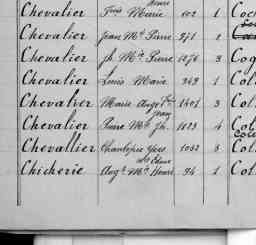 Chevalier Marie 102 1 Co
Chevalier Jean Mie Pierre 971 2
Chevalier Jh. Mie Pierre 1276 3 Co
Chevalier Louis Marie 349 1 Col
Chevalier Marie Ange 1401 3 Col
Jean
Chevalier Pierre Mie Jh. 1123 4 Col
Chevallier Chantepie Yves 1052 3 Col
Chicherie Aug. Mie Henri 94 1 Col